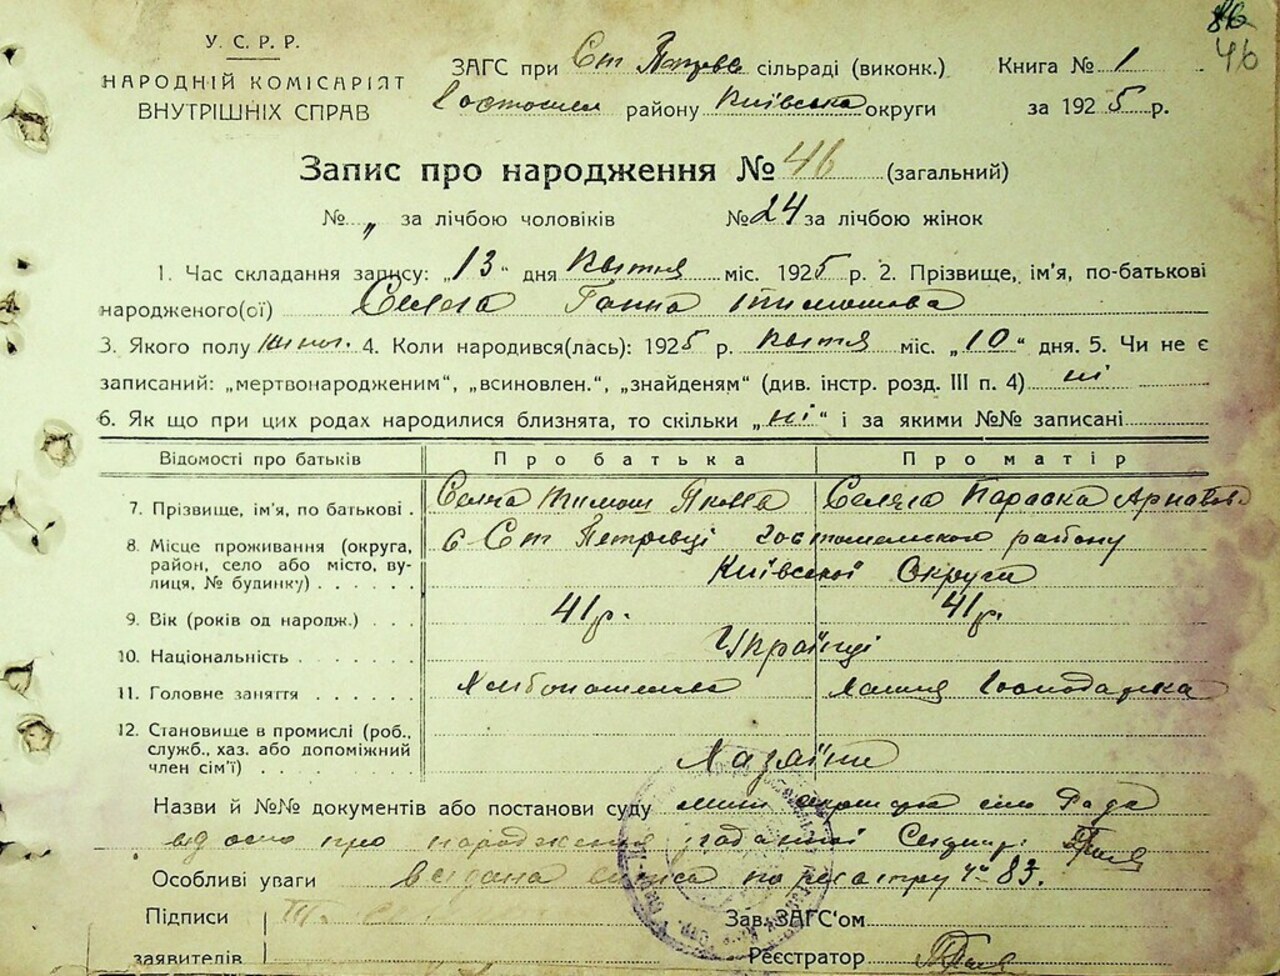 46
У. С. Р. Р.
НАРОДНІЙ КОМІСАРІЯТ
ВНУТРІШНІХ СПРАВ
ЗАГС при Ст Петрівс сільраді (виконк.) Книга № 1
Гостомел району Київська округи за 1925 р.
Запис про народження № 46 (загальний)
№ „ за лічбою чоловіків № 24 за лічбою жінок
1. Час складання запису: „13“ дня Квітня міс. 1925 р. 2. Прізвище, ім'я, по-батькові
народженого(ої) Ганна Тимошова
3. Якого полу жіноч. 4. Коли народився(лась): 1925 р. квітня міс. „10“ дня. 5. Чи не є
записаний: „мертвонародженим“, „всиновлен.“, „знайденям“ (див. інстр. розд. III п. 4) ні
6. Як що при цих родах народилися близнята, то скільки „ні“ і за якими №№ записані
Відомості про батьків Про батька Про матір
7. Прізвище, ім'я, по батькові . Тимош Якова Параска
8. Місце проживання (округа, район, село або місто, вулиця, № будинку) с Ст Петрівці Гостомельского району
Київської Округи
9. Вік (років од народж.) . . . 41 р. 41 р.
10. Національність . . . . . . Українці
11. Головне заняття . . . . . . Хлібопашество Хатня Господарка
12. Становище в промислі (роб., служб., хаз. або допоміжний член сім'ї) . . . . . . Хазяїни
Назви й №№ документів або постанови суду Рада
про народження згаданної Секр:
Особливі уваги видана виписа по реєстру № 83.
Підписи Зав. ЗАГС'ом
заявителів Реєстратор